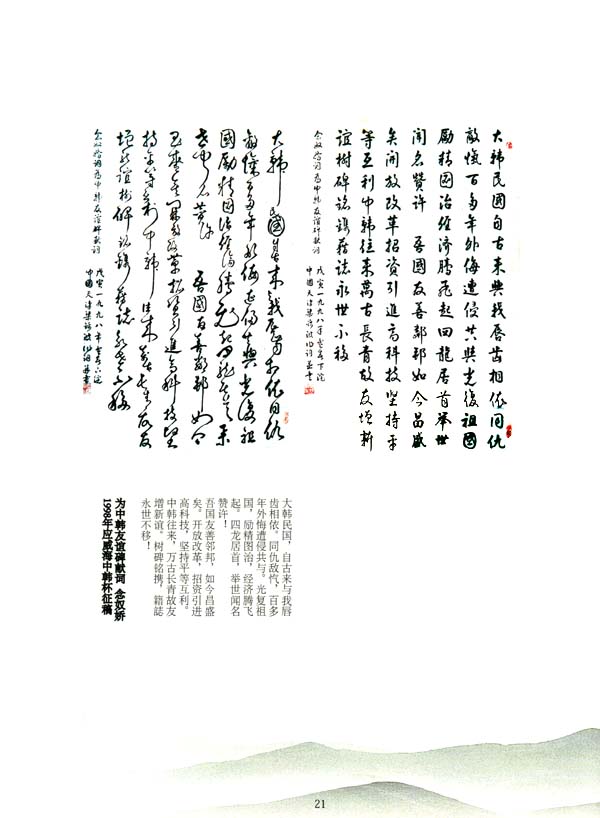 大韩民國自古来與我唇齒相依同仇
敵愾百多年外侮遭侵共與光復祖國
励精國治经济腾飞起四龍居首举世
闻名赞许 吾國友善鄰邦如今昌盛
矣開放改革招资引進高科技坚持平
等互利中韩往来萬古長青故友增新
誼樹碑銘鐫籍誌永世不移
念奴娇词为中韩友谊碑献词
戊寅一九九八年
中國天津
大韩民國自古来與我唇齒相依同仇
敵愾百多年外侮遭侵共與光復祖
國励精图治经济腾飞起四龍居首举
世闻名赞许 吾國友善鄰邦如今
昌盛矣開放改革招资引進高科技坚
持平等互利中韩往来萬古长青故友
增新誼樹碑銘鐫籍誌永世不移
念奴娇词为中韩友谊碑献词
戊寅一九九八年
中國天津
大韩民国，自古来与我唇
齿相依。同仇敌忾，百多
年外悔遭侵共与。光复祖
国，励精图治，经济腾飞
起。四龙居首，举世闻名
赞许！
吾国友善邻邦，如今昌盛
矣。开放改革，招资引进
高科技，坚持平等互利。
中韩往来，万古长青故友
增新谊。树碑铭携，籍誌
永世不移！
为中韩友谊碑献词 念奴娇
1998年应威海中韩杯征稿
21